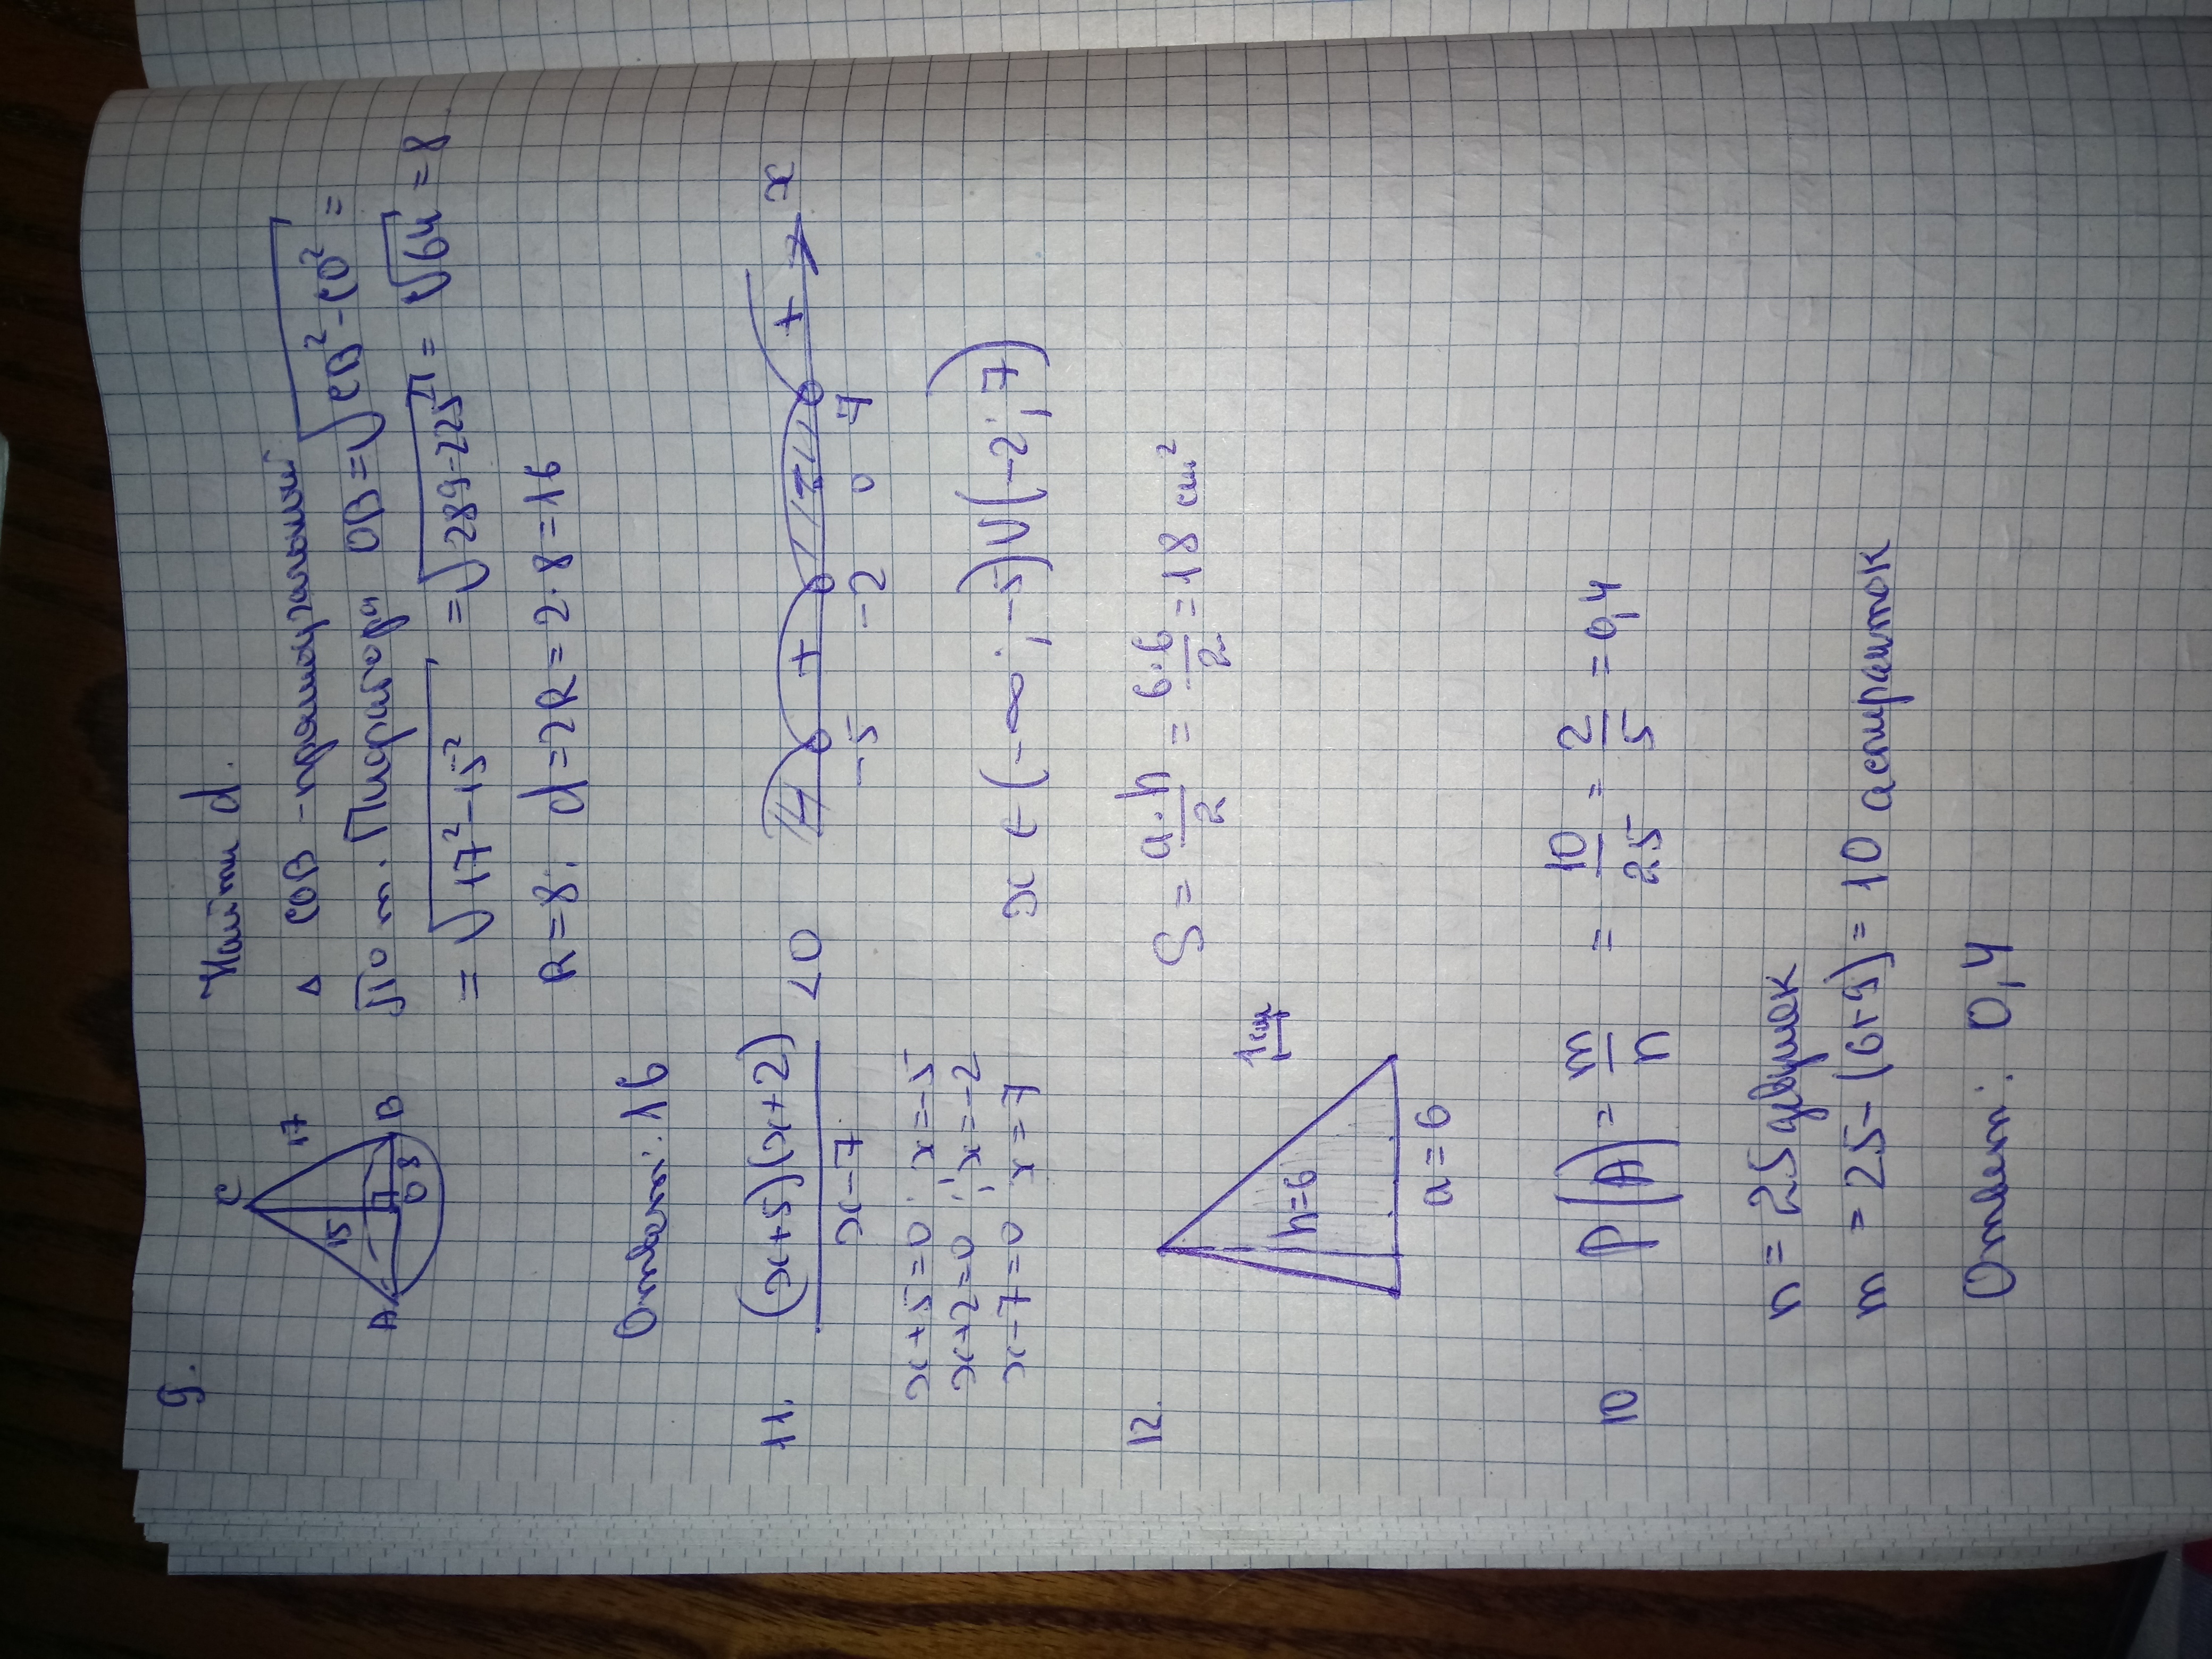 9.
C
17
15
A
O
8
B
Найти d.
△ COB - прямоугольный
По т. Пифагора OB = √CB² - CO² =
= √17² - 15² = √289 - 225 = √64 = 8
R = 8. d = 2R = 2 · 8 = 16
Ответ: 16
11. (x+5)(x+2) / x-7 < 0
- + - + x
-5 -2 0 7
x+5=0; x=-5
x+2=0; x=-2
x-7=0 x=7
x ∈ (-∞; -5) ∪ (-2; 7)
12. S = a·h / 2 = 6·6 / 2 = 18 см²
1см
h=6
a=6
10 P(A) = m/n = 10/25 = 2/5 = 0,4
n = 25 девушек
m = 25 - (6+9) = 10 аспиранток
Ответ: 0,4